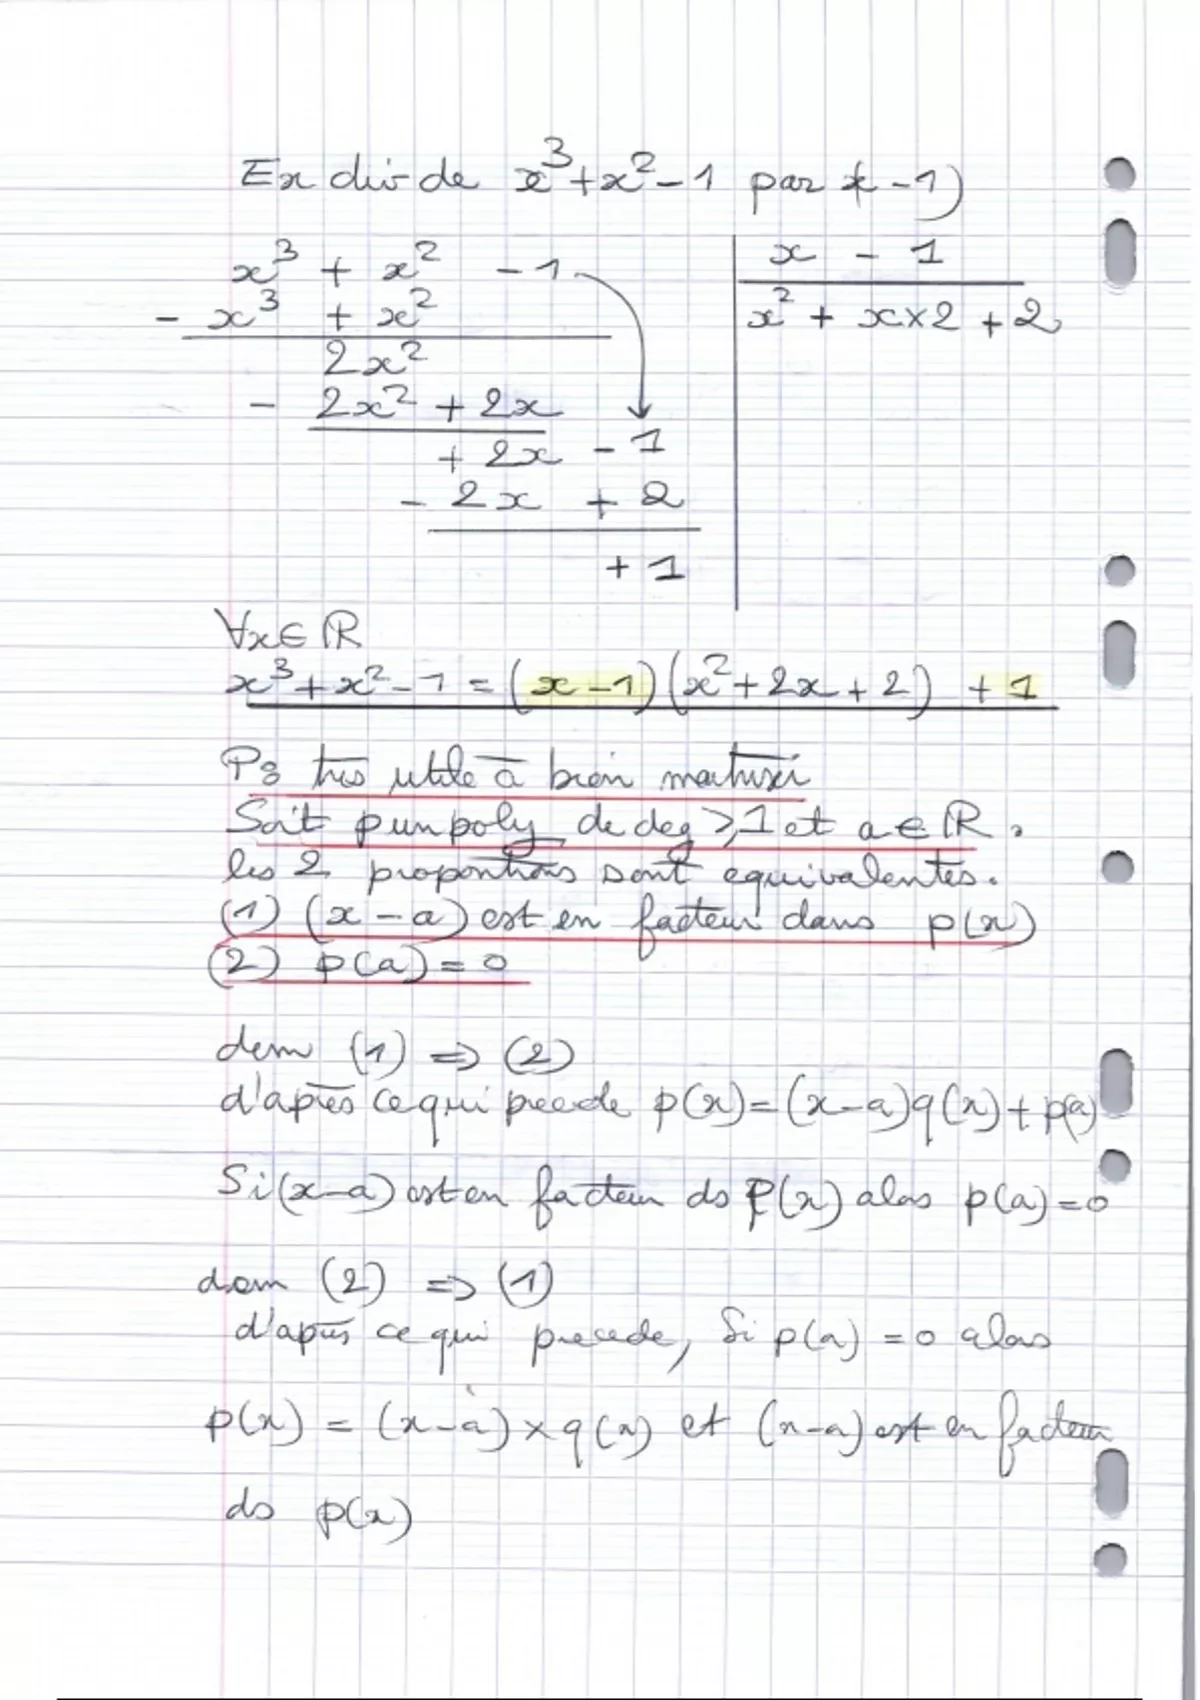 Ex div de x³+x²-1 par x-1)
x³ + x² -1
x - 1
- x³ + x²
x² + x×2 + 2
2x²
- 2x² + 2x
+ 2x - 1
- 2x + 2
+ 1
∀x∈ℝ
x³+x²-1 = (x-1)(x²+2x+2) + 1
P3 très utile à bien maitriser
Soit p un poly de deg ⩾1 et a∈ℝ.
les 2 proportions sont equivalentes.
(1) (x-a) est en facteur dans p(x)
(2) p(a)=0
dem (1) ⇒ (2)
d'après ce qui precede p(x)=(x-a)q(x)+p(a)
Si (x-a) est en facteur ds p(x) alors p(a)=0
dem (2) ⇒ (1)
d'après ce qui precede, Si p(a) = 0 alors
p(x) = (x-a)×q(x) et (x-a) est en facteur
ds p(x)